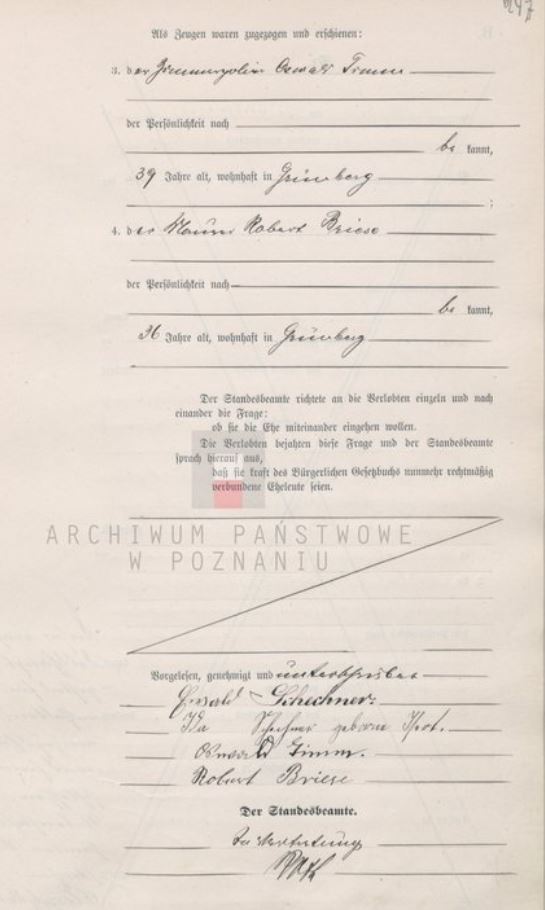 247
Als Zeugen waren zugezogen und erschienen:
3. der Oswald Timm
der Persönlichkeit nach
be kannt,
39 Jahre alt, wohnhaft in Grünberg
;
4. der Maurer Robert Briese
der Persönlichkeit nach
be kannt,
36 Jahre alt, wohnhaft in Grünberg
Der Standesbeamte richtete an die Verlobten einzeln und nach
einander die Frage:
ob sie die Ehe miteinander eingehen wollen.
Die Verlobten bejahten diese Frage und der Standesbeamte
sprach hierauf aus,
daß sie kraft des Bürgerlichen Gesetzbuchs nunmehr rechtmäßig
verbundene Eheleute seien.
ARCHIWUM PAŃSTWOWE
W POZNANIU
Vorgelesen, genehmigt und unterschrieben
Ewald Schechner.
Ida Schechner geborne
Oswald Timm.
Robert Briese
Der Standesbeamte.
In Vertretung